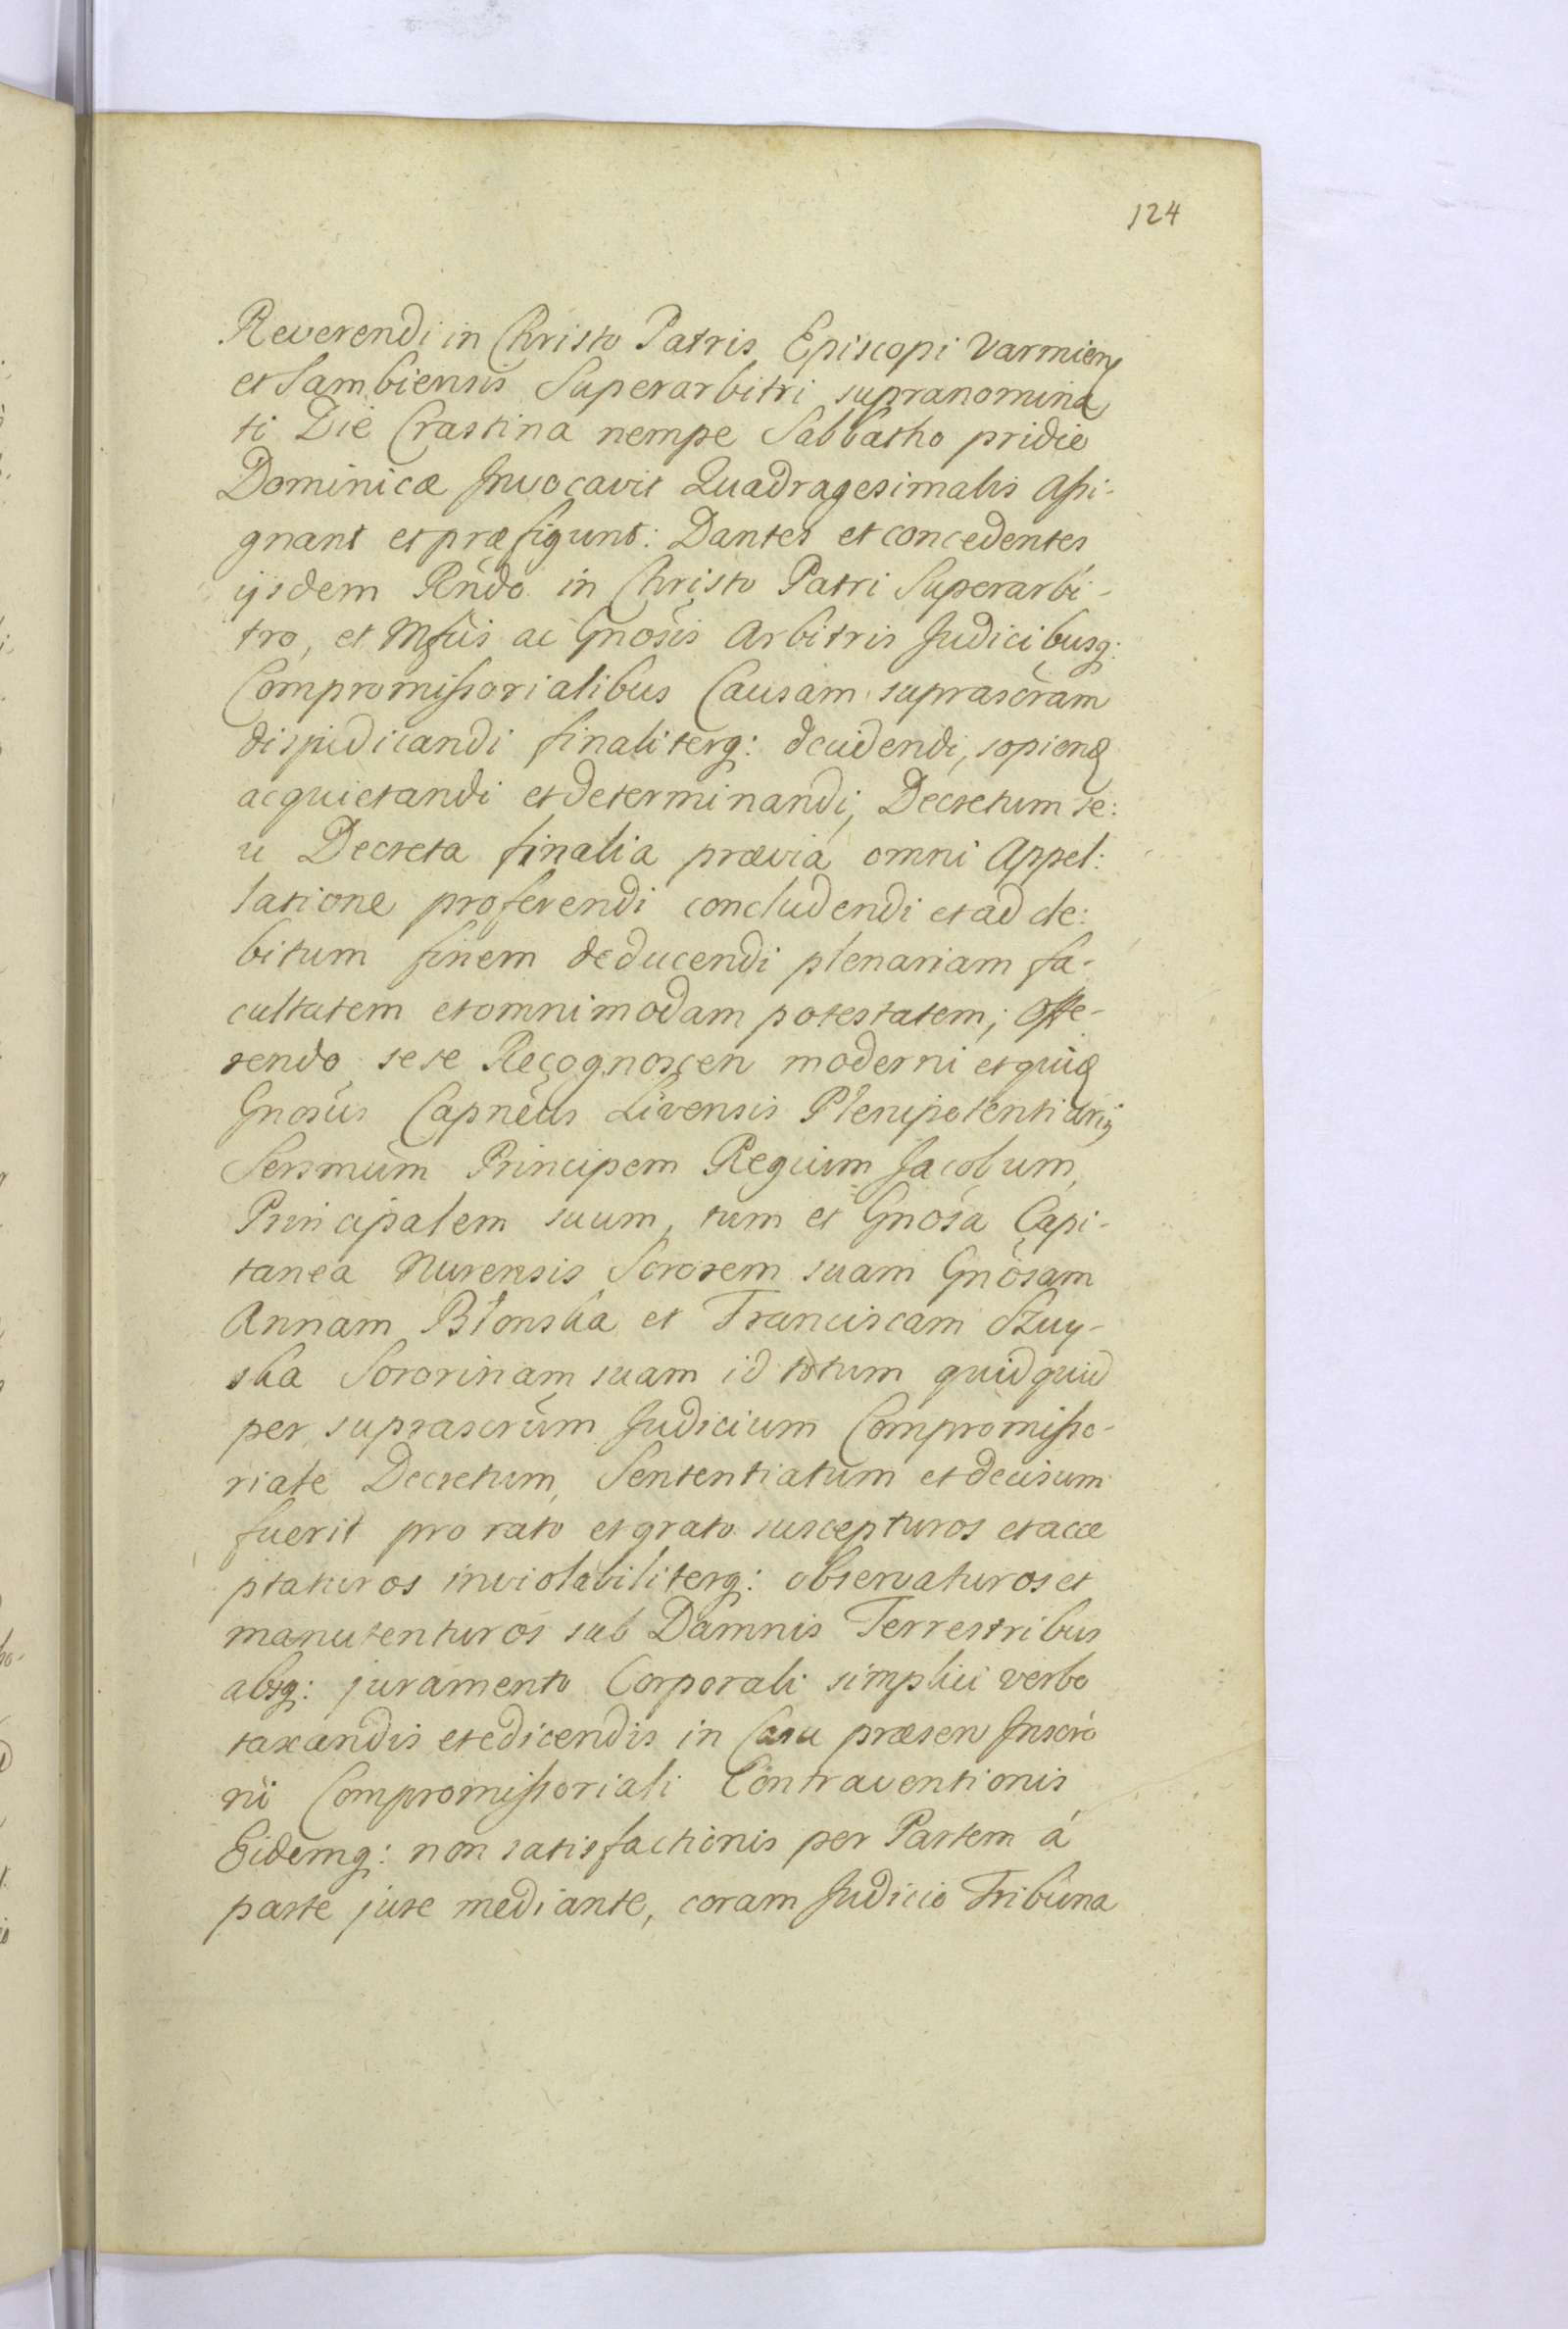 124
Reverendi in Christo Patris Episcopi Varmien
et Sambiensis Superarbitri supranomina
ti Die Crastina nempe Sabbatho pridie
Dominicæ Invocavit Quadragesimalis Assi-
gnant et præfigunt: Dantes et concedentes
ijsdem Rndo in Christo Patri Superarbi-
tro, et Mfcis ac Gnosis Arbitris Judicibusq:
Compromissorialibus Causam suprascram
disjudicandi finaliterq: decidendi, sopiend
acquietandi et determinandi, Decretum se:
u Decreta finalia prævia omni Appel:
latione proferendi concludendi et ad de:
bitum finem deducendi plenariam fa-
cultatem et omnimodam potestatem; Offe-
rendo sese Recognoscen moderni et quid
Gnosus Capneus Livensis Plenipotentiarij
Sersmum Principem Regium Jacobum,
Principalem suum, tum et Gnosa Capi-
tanea Nurensis Sororem suam Gnosam
Annam Błonska et Franciscam Szuy-
ska Sororinam suam id totum quidquid
per suprascrum Judicium Compromisso-
riale Decretum, Sententiatum et decisum
fuerit pro rato et grato suscepturos et acce
ptaturos inviolabiliterq: observaturos et
manutenturos sub Damnis Terrestribus
absq: juramento Corporali simplici verbo
taxandis et edicendis in Casu præsen Inscrio
ni Compromissoriali Contraventionis
Eidemq: non satisfactionis per Partem á
parte jure mediante, coram Judicio Tribuna